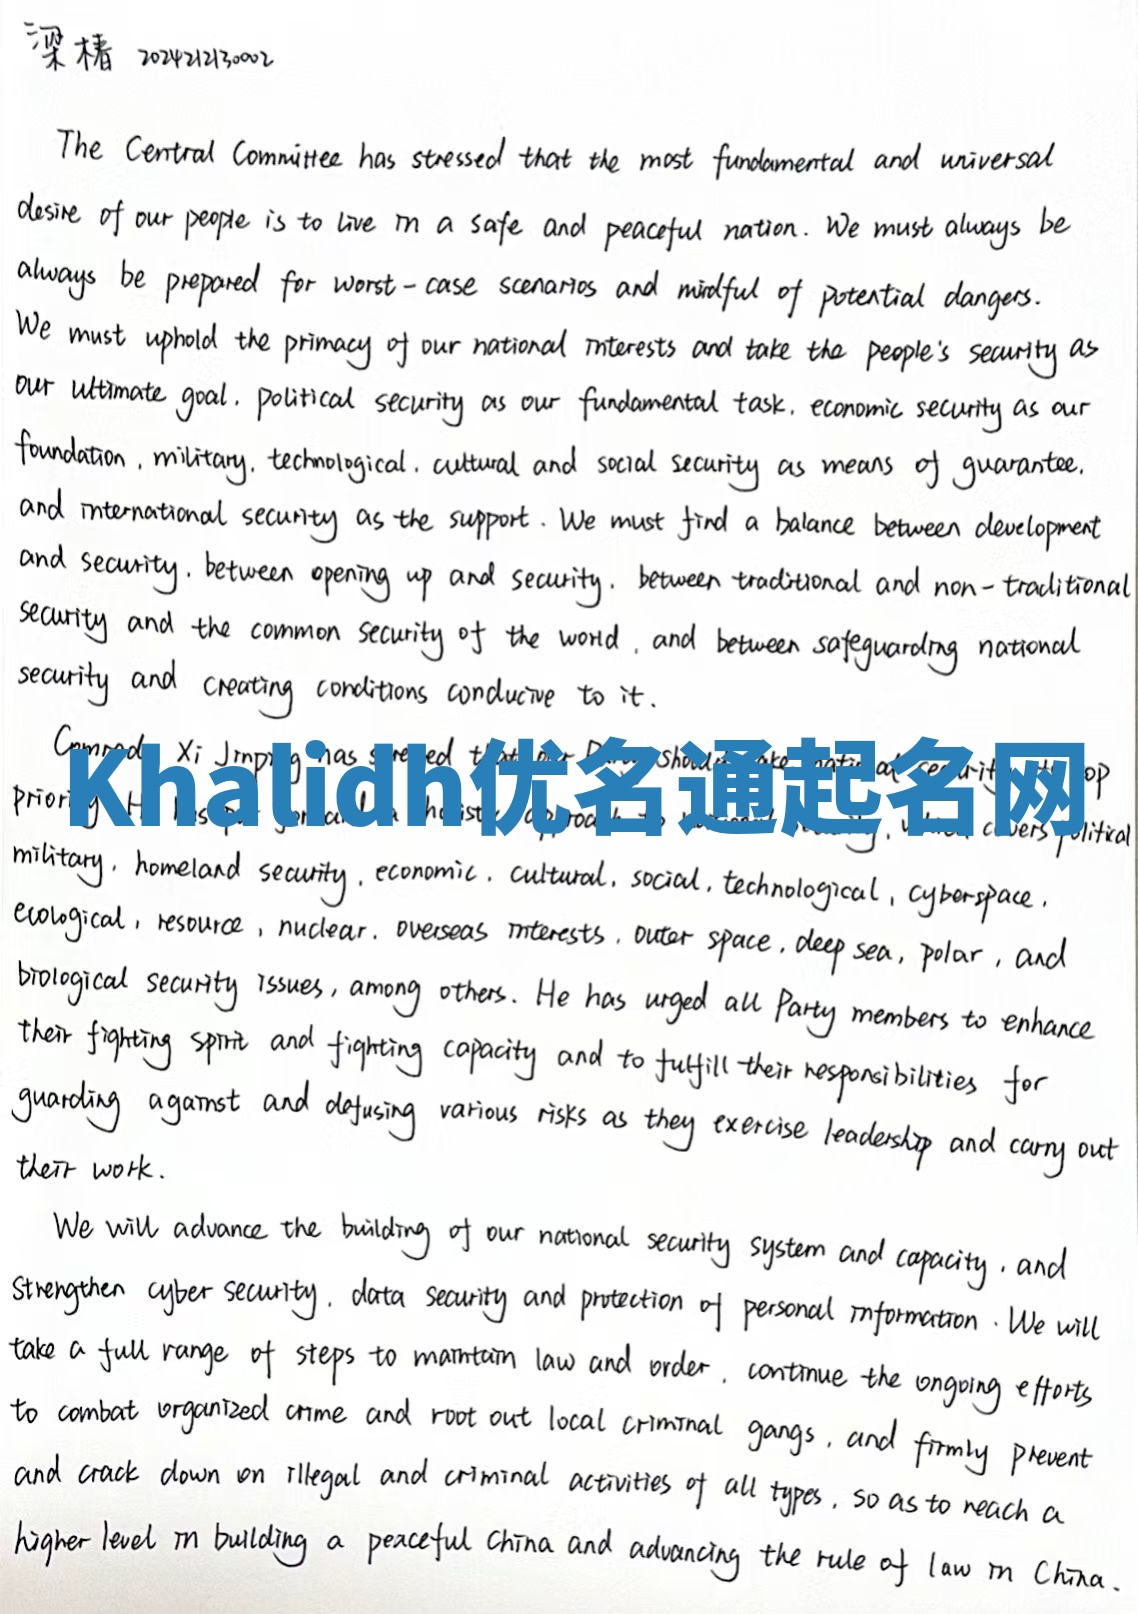 梁椿 2024212130002
The Central Committee has stressed that the most fundamental and universal
desire of our people is to live in a safe and peaceful nation. We must always be
always be prepared for worst-case scenarios and mindful of potential dangers.
We must uphold the primacy of our national interests and take the people's security as
our ultimate goal, political security as our fundamental task, economic security as our
foundation, military, technological, cultural and social security as means of guarantee,
and international security as the support. We must find a balance between development
and security, between opening up and security, between traditional and non-traditional
security and the common security of the world, and between safeguarding national
security and creating conditions conducive to it.
Xi Jinping has stressed that our should
Khalidh优名通起名网
covers political
military, homeland security, economic, cultural, social, technological, cyberspace,
ecological, resource, nuclear, overseas interests, outer space, deep sea, polar, and
biological security issues, among others. He has urged all Party members to enhance
their fighting spirit and fighting capacity and to fulfill their responsibilities for
guarding against and defusing various risks as they exercise leadership and carry out
their work.
We will advance the building of our national security system and capacity, and
strengthen cyber security, data security and protection of personal information. We will
take a full range of steps to maintain law and order, continue the ongoing efforts
to combat organized crime and root out local criminal gangs, and firmly prevent
and crack down on illegal and criminal activities of all types, so as to reach a
higher level in building a peaceful China and advancing the rule of law in China.